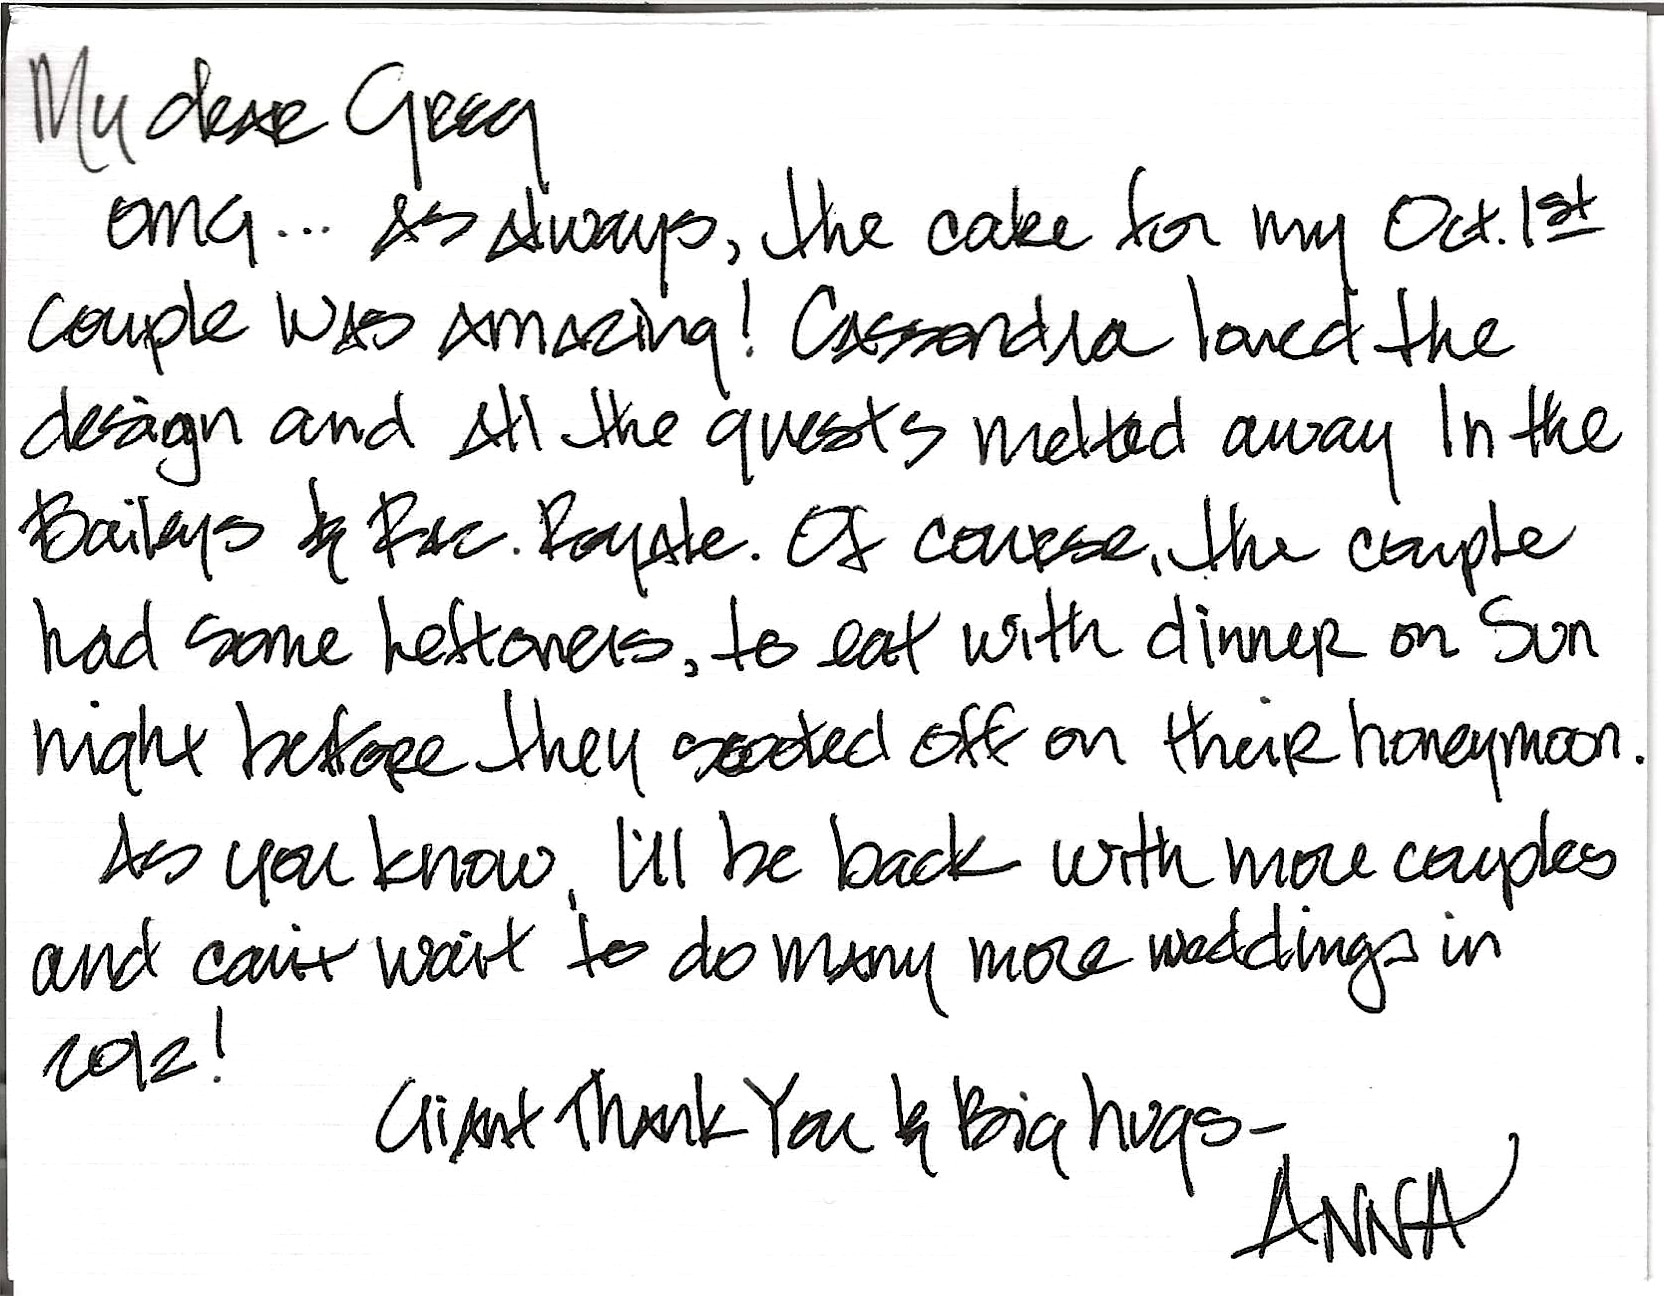 My dear Greg
OMG... As Always, the cake for my Oct. 1st
couple was Amazing! Cassandra loved the
design and All the guests melted away In the
Baileys & Rac. Royale. Of course, the couple
had some leftovers, to eat with dinner on Sun
night before they scooted off on their honeymoon.
As you know, I'll be back with more couples
and can't wait to do many more weddings in
2012!
Giant Thank You & Big hugs-
ANNA